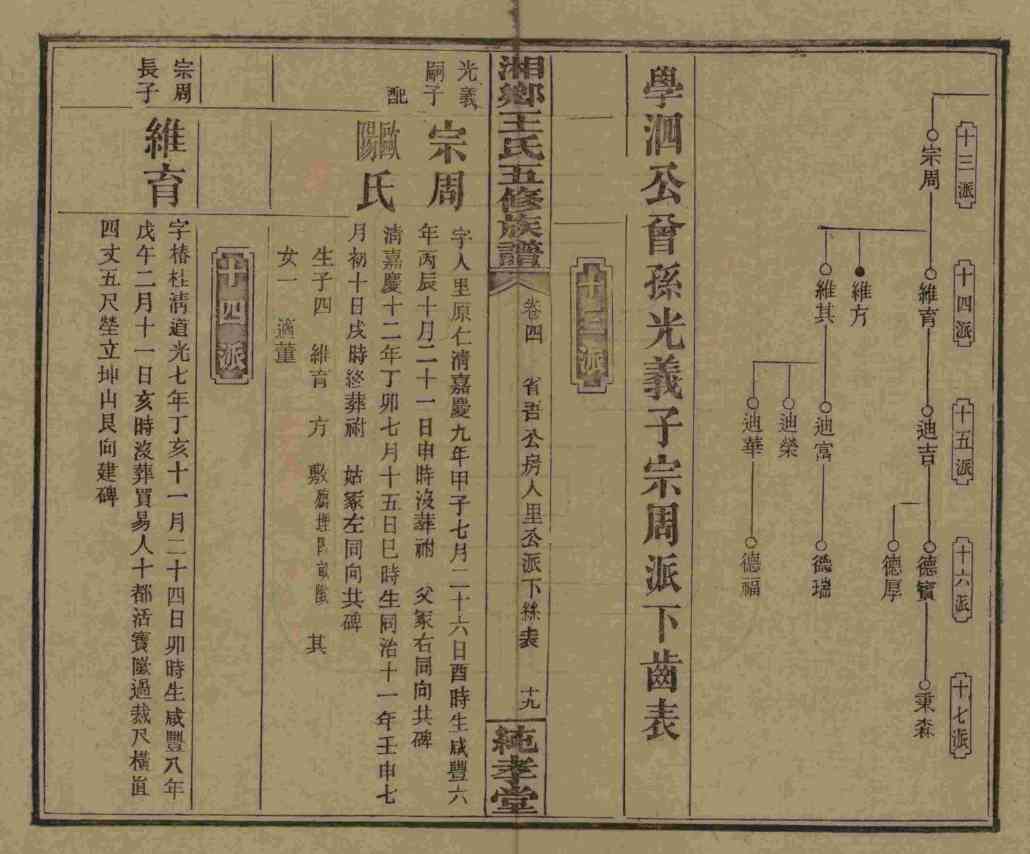 十三派
十四派
十五派
十六派
十七派
宗周
維育
維方
維其
迪吉
迪富
迪榮
迪華
德賓
德厚
德瑞
德福
秉森
學泗公曾孫光義子宗周派下齒表
湘鄉王氏五修族譜
卷四 省吾公房人里公派下絲表 十九
純孝堂
十三派
光義嗣子
宗周
字人里原仁淸嘉慶九年甲子七月二十六日酉時生咸豐六
年丙辰十月二十一日申時沒葬祔 父冢右同向共碑
配
歐陽氏
淸嘉慶十二年丁卯七月十五日巳時生同治十一年壬申七
月初十日戌時終葬祔 姑冢左同向共碑
生子四 維育 方 敷 其
女一 適董
十四派
宗周長子
維育
字椿杜淸道光七年丁亥十一月二十四日卯時生咸豐八年
戊午二月十一日亥時沒葬買易人十都活寳隴過裁尺橫直
四丈五尺塋立坤山艮向建碑